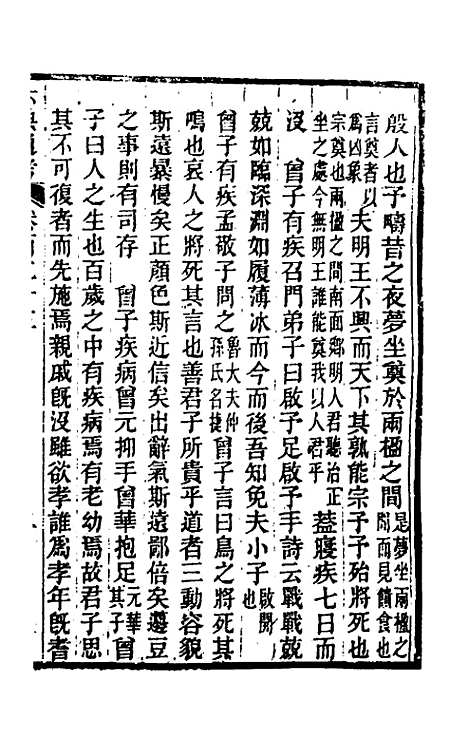 殷人也予疇昔之夜夢坐奠於兩楹之間是夢坐兩楹之間而見饋食也
言奠者以爲凶象夫明王不興而天下其孰能宗予予殆將死也
宗奠也兩楹之間南面鄉明人君聽治正坐之處今無明王誰能奠我以人君乎蓋寢疾七日而
沒　曾子有疾召門弟子曰啟予足啟予手詩云戰戰兢
兢如臨深淵如履薄冰而今而後吾知免夫小子啟開也
曾子有疾孟敬子問之魯大夫仲孫氏名捷曾子言曰鳥之將死其
鳴也哀人之將死其言也善君子所貴乎道者三動容貌
斯遠暴慢矣正顏色斯近信矣出辭氣斯遠鄙倍矣籩豆
之事則有司存　曾子疾病曾元抑手曾華抱足元華曾其子
子曰人之生也百歲之中有疾病焉有老幼焉故君子思
其不可復者而先施焉親戚旣沒雖欲孝誰爲孝年旣耆